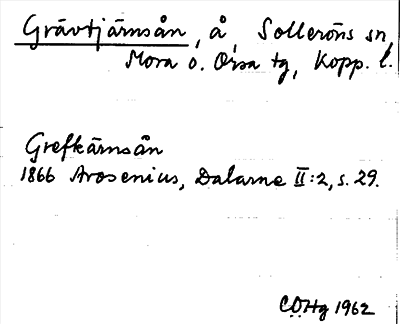 Grävtjärnsån, å, Solleröns sn,
Mora o. Orsa tg, Kopp. l.
Grefkärnsån
1866 Arosenius, Dalarne II:2, s. 29.
COHg 1962